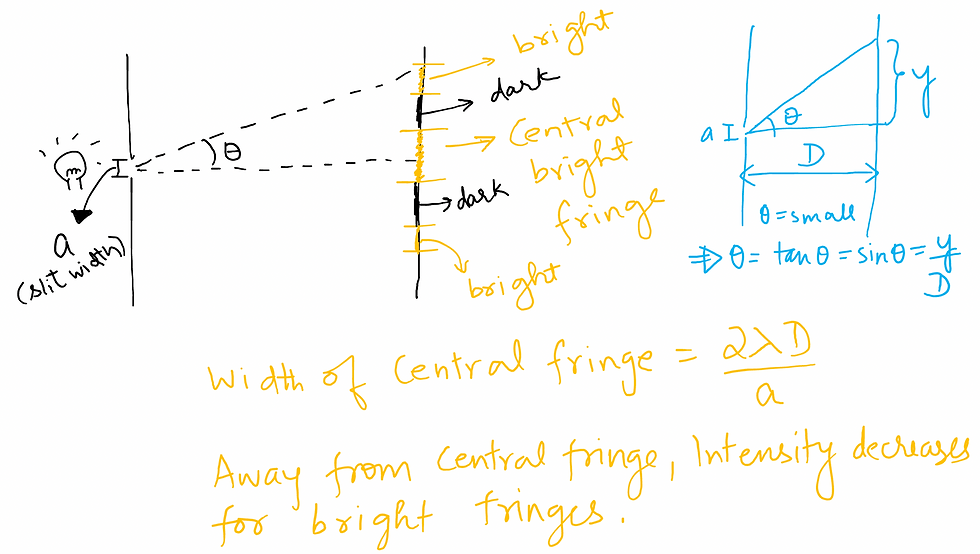 bright
dark
Central
bright
fringe
dark
bright
θ
a
(slit width)
a
θ
y
D
θ = small
⇒ θ = tanθ = sinθ = y/D
Width of Central fringe = 2λD/a
Away from Central fringe, Intensity decreases
for bright fringes.